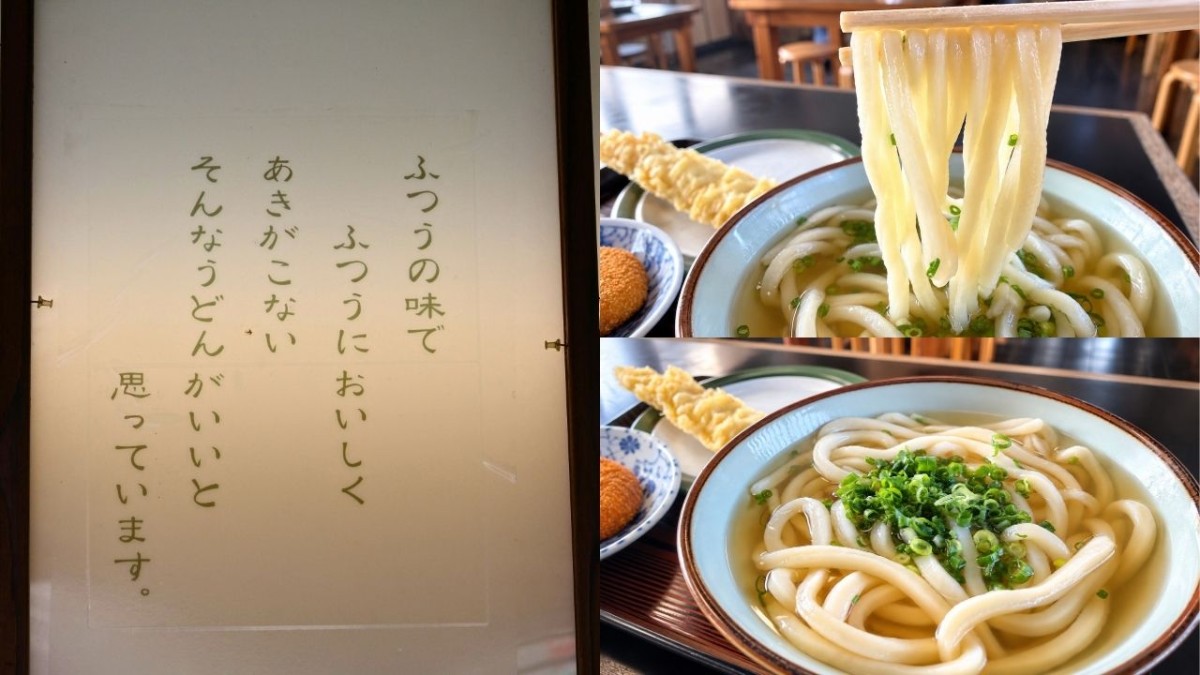 ふつうの味で
ふつうにおいしく
あきがこない
そんなうどんがいいと
思っています。